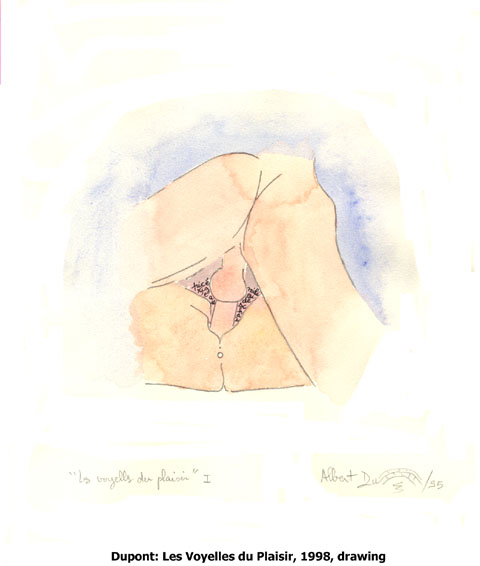 "Les voyells du plaisir" I
Albert Du /95
Dupont: Les Voyelles du Plaisir, 1998, drawing